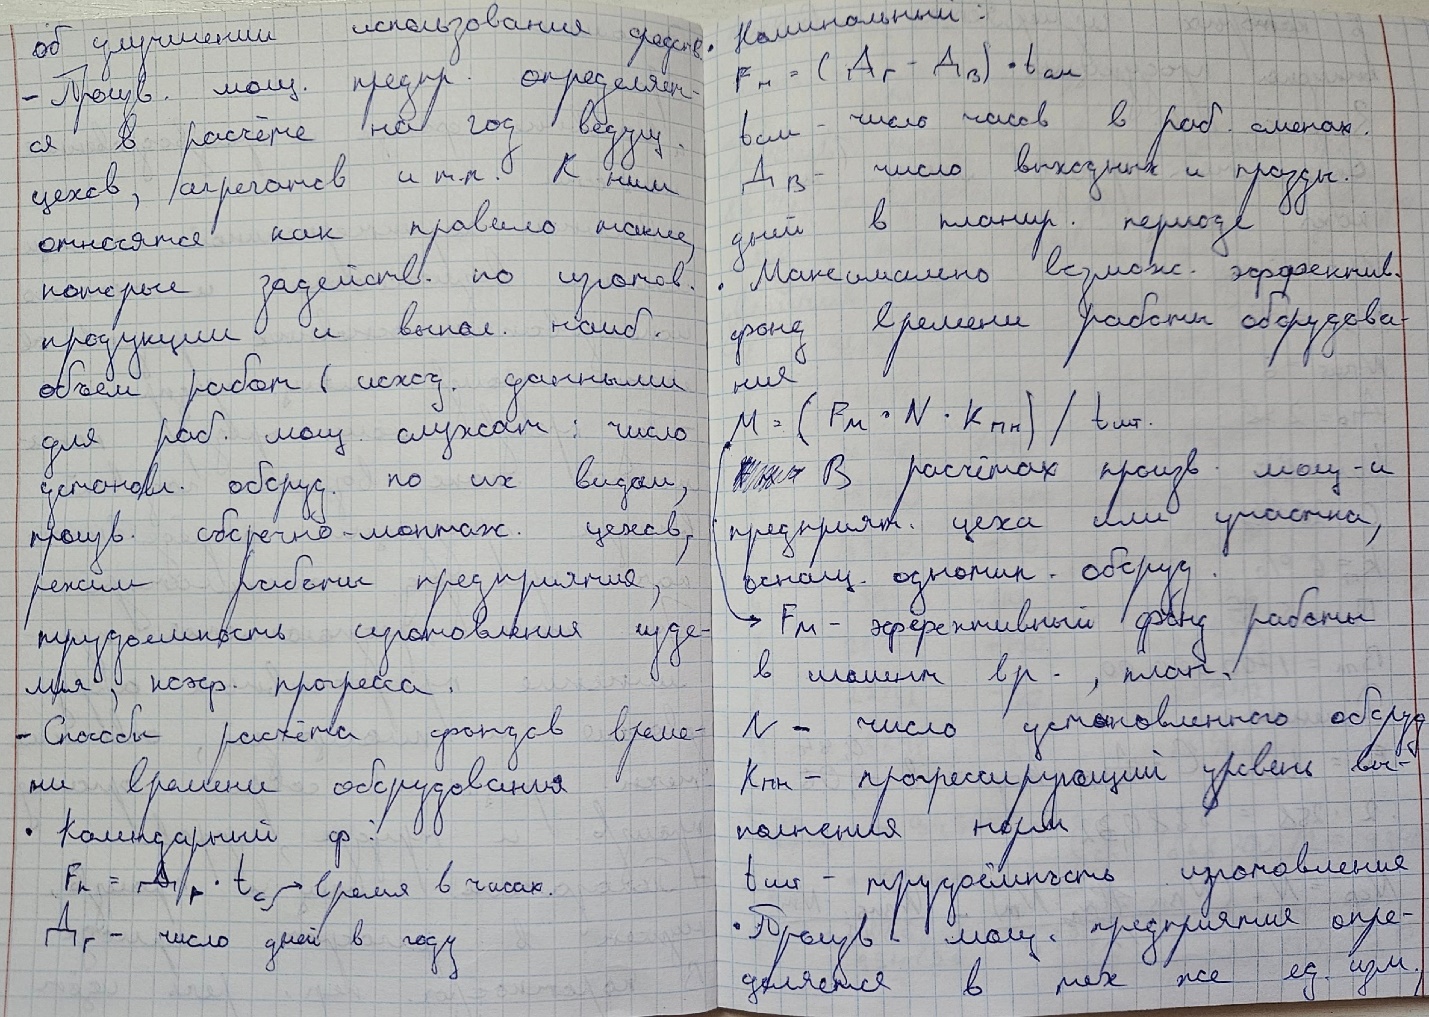 об улучшении использования средств.
- Произв. мощ. предпр. определяет-
ся в расчёте на год ведущ.
цехов, агрегатов и т.п. К ним
относятся как правило такие,
которые задейств. по изготов.
продукции и выпол. наиб.
объем работ ( исход. данными
для раб. мощ. служат : число
установл. оборуд. по их видам,
произв. сборочно-монтаж. цехов,
режим работы предприятия,
трудоёмкость изготовления изде-
лия, коэф. прогресса.
- Способы расчёта фондов време-
ни времени оборудования
• Календарный ф:
Fк = Дг · tс → время в часах.
Дг - число дней в году
• Номинальный:
Fн = (Дг - Дв) · tсм
tсм - число часов в раб. сменах.
Дв - число выходных и празд.
дней в планир. периоде
• Максимально возмож. эффектив.
фонд времени работы оборудова-
ния
M = (Fм · N · Kпн) / tшт.
В расчётах произв. мощ-и
предприят. цеха или участка,
оснащ. однотип. оборуд.
→ Fм - эффективный фонд работы
в момент вр., план.
N - число установленного оборуд
Kпн - прогрессирующий уровень вы-
полнения норм
tшт - трудоёмкость изготовления
• Произв. мощ. предприятия опре-
деляется в тех же ед. изм,